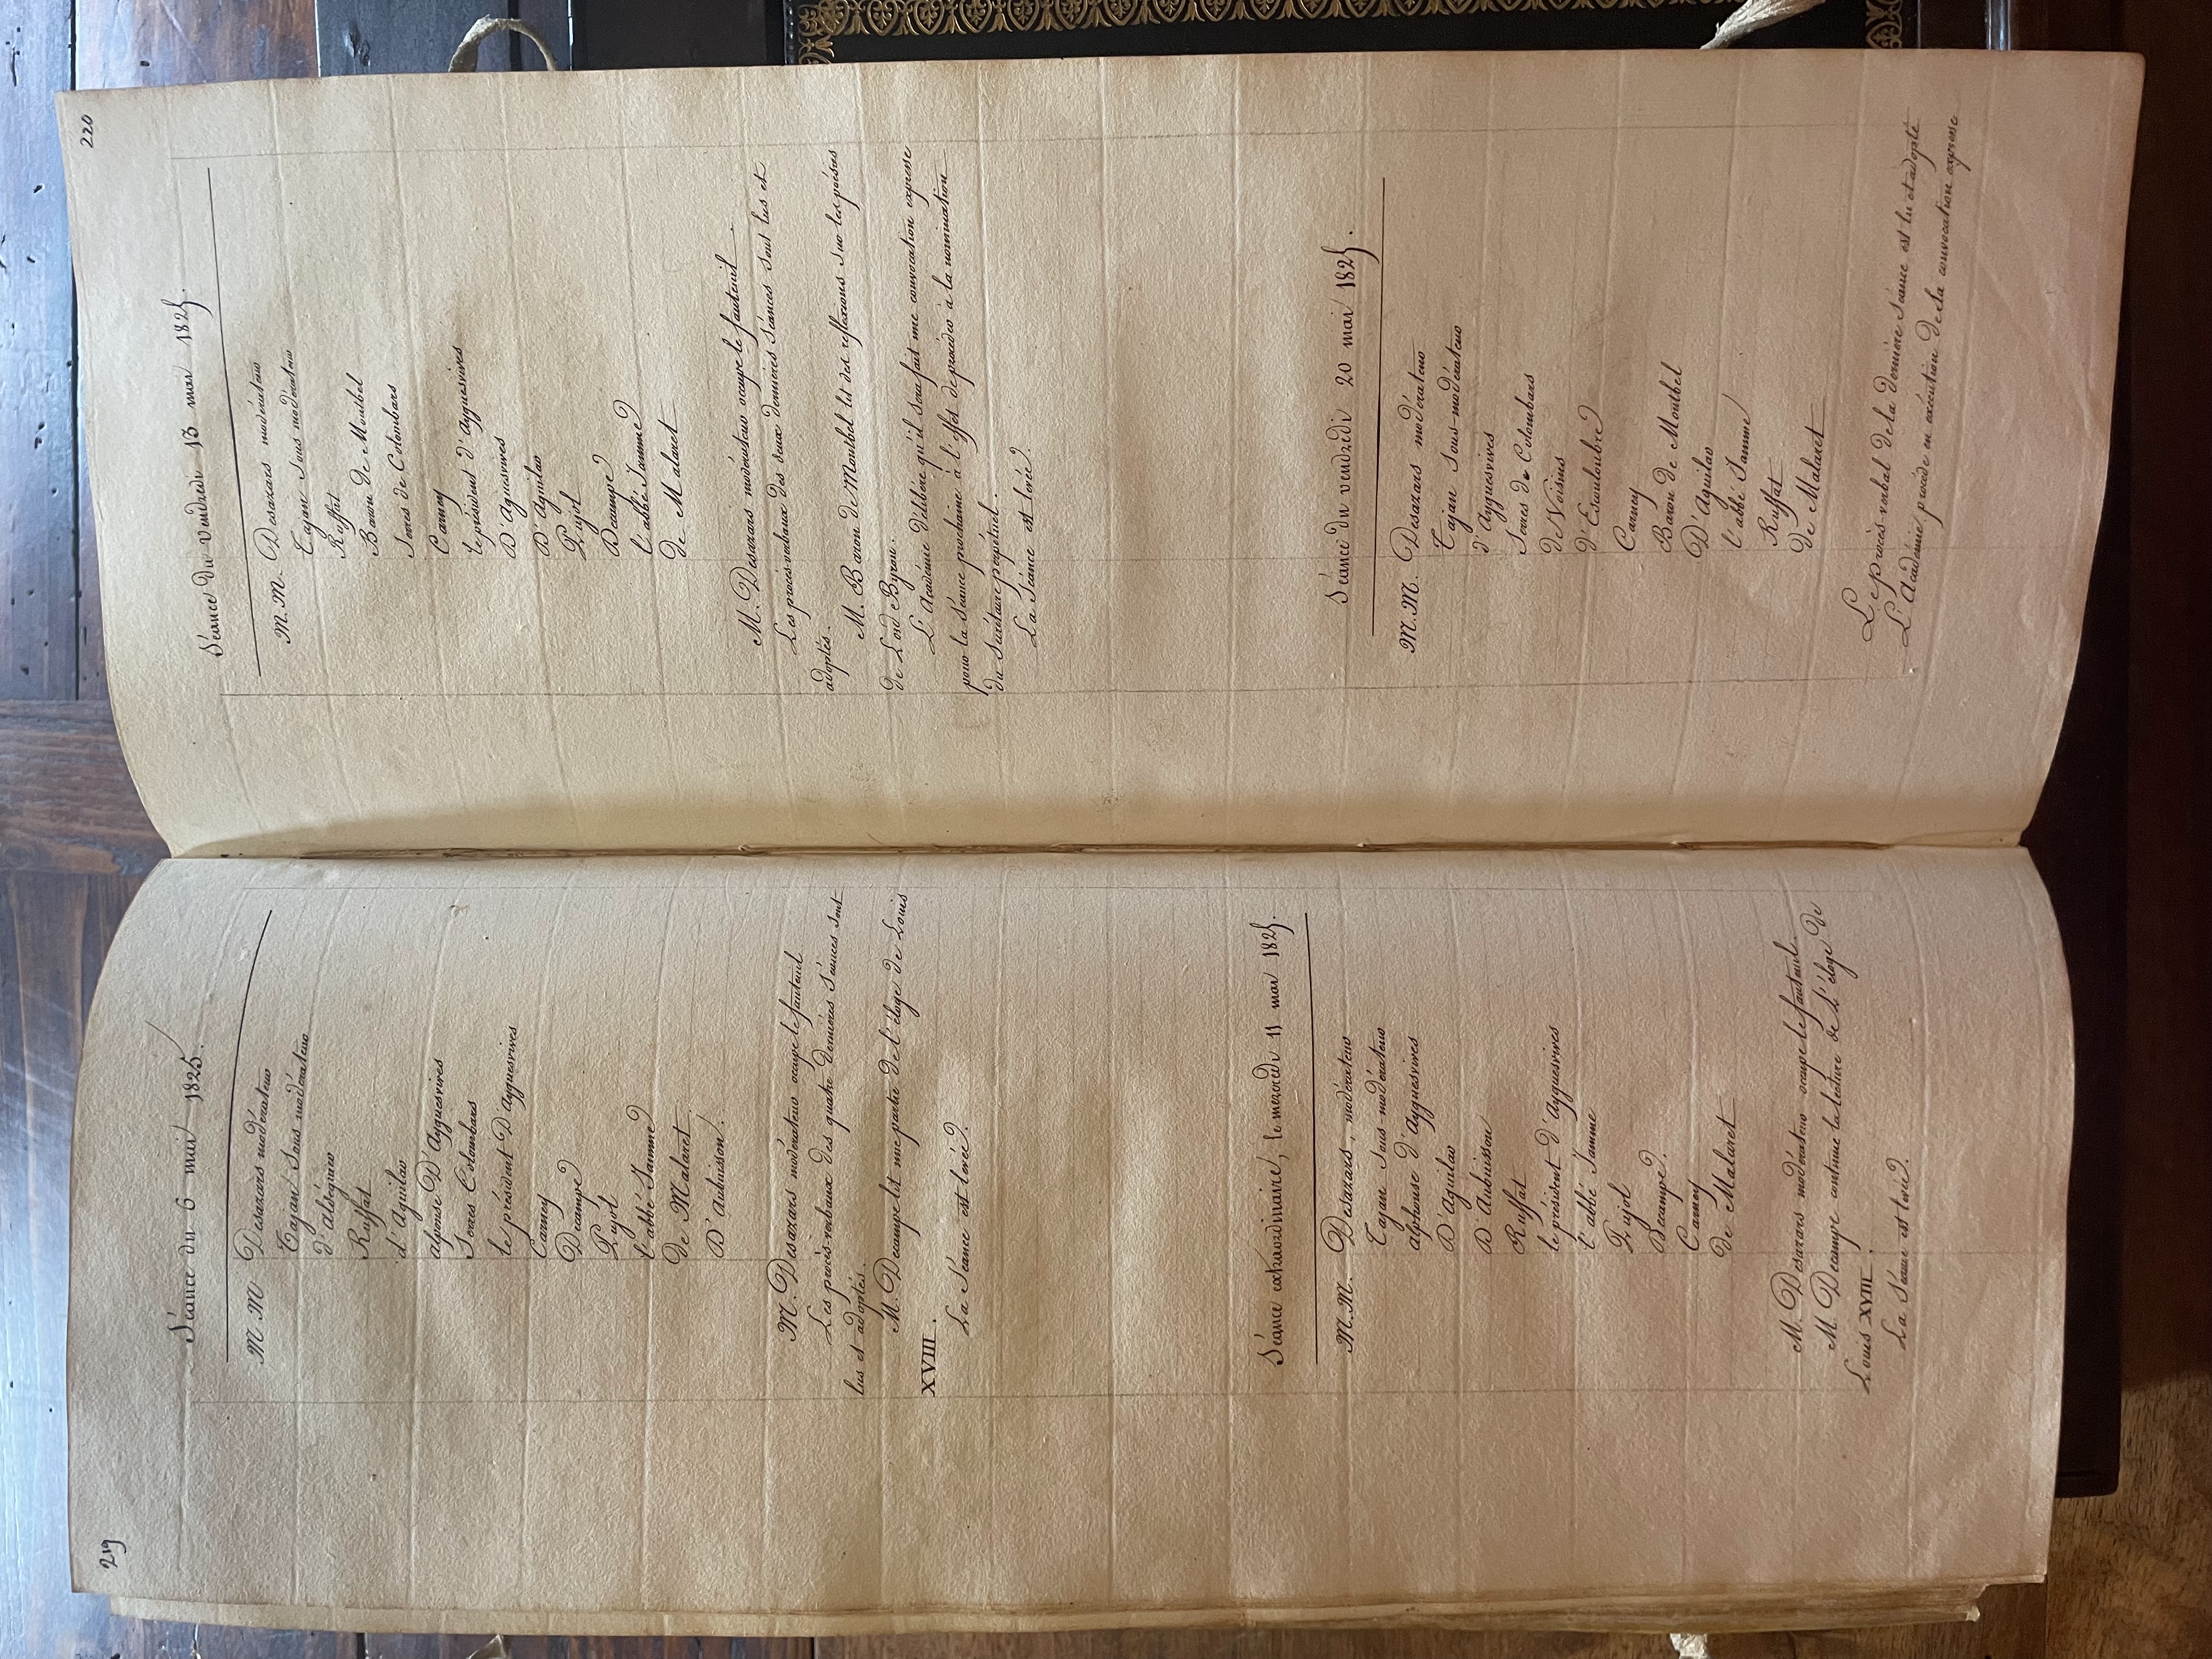 219
Séance du 6 mai 1825.
M.M Desazars modérateur
Tajan Sous modérateur
d'aldeguier
Ruffat
d'Aguilar
alponse D'Ayguesvives
Serres Colombars
le président D'Ayguesvives
Carney
Decampe
Pujol
l'abbé Jamme
de Malaret
D'Aubuisson.
M. Desazars modérateur occupe le fauteuil
Les procès-verbaux des quatre dernières Séances sont
lus et adoptés.
M. Decampe lit une partie de l'éloge de Louis
XVIII.
La Séance est levée.
Séance extraordinaire, le mercredi 11 mai 1825.
M.M. Desazars, modérateur
Tajan Sous modérateur
alphonse d'Ayguesvives
D'Aguilar
D'Aubuisson
Ruffat
le président d'Ayguesvives
l'abbé Jamme
Pujol
Decampe.
Carney
de Malaret
M. Desazars modérateur occupe le fauteuil.
M. Decampe continue la lecture de L'éloge de
Louis XVIII.
La Séance est levée.
220
Séance du vendredi 13 mai 1825.
M.M. Desazars modérateur
Tajan Sous modérateur
Ruffat
Baron de Montbel
Serres de Colombars
Carney
le président d'Ayguesvives
D'Aguesvives
D'Aguilar
Pujol
Decampe
l'abbé Jamme
de Malaret
M. Desazars modérateur occupe le fauteuil.
Les procès-verbaux des deux dernières Séances sont lus et
adoptés.
M. Baron de Montbel lit des réflexions sur les poésies
de Lord Byron.
L'Académie délibère qu'il sera fait une convocation expresse
pour la Séance prochaine à l'effet de procéder à la nomination
du Secrétaire perpétuel.
La Séance est levée.
Séance du vendredi 20 mai 1825.
M.M. Desazars modérateur
Tajan Sous-modérateur
d'Ayguesvives
Serres de Coloubars
de Voisins
d'Escouloubre
Carney
Baron de Montbel
D'Aguilar
l'abbé Jamme
Ruffat
de Malaret
Le procès-verbal de la dernière Séance est lu et adopté
L'Académie procède en exécution de sa convocation expresse